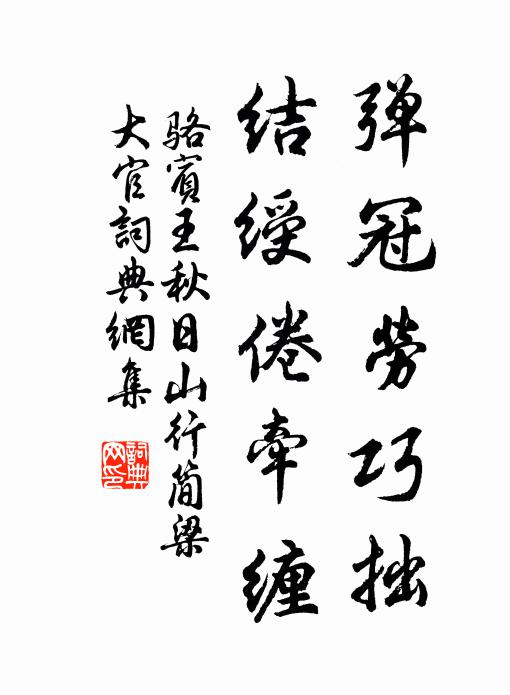 弹冠劳巧拙
结绶倦牵缠
骆宾王秋日山行简梁
大官詞典網集
詞典网印